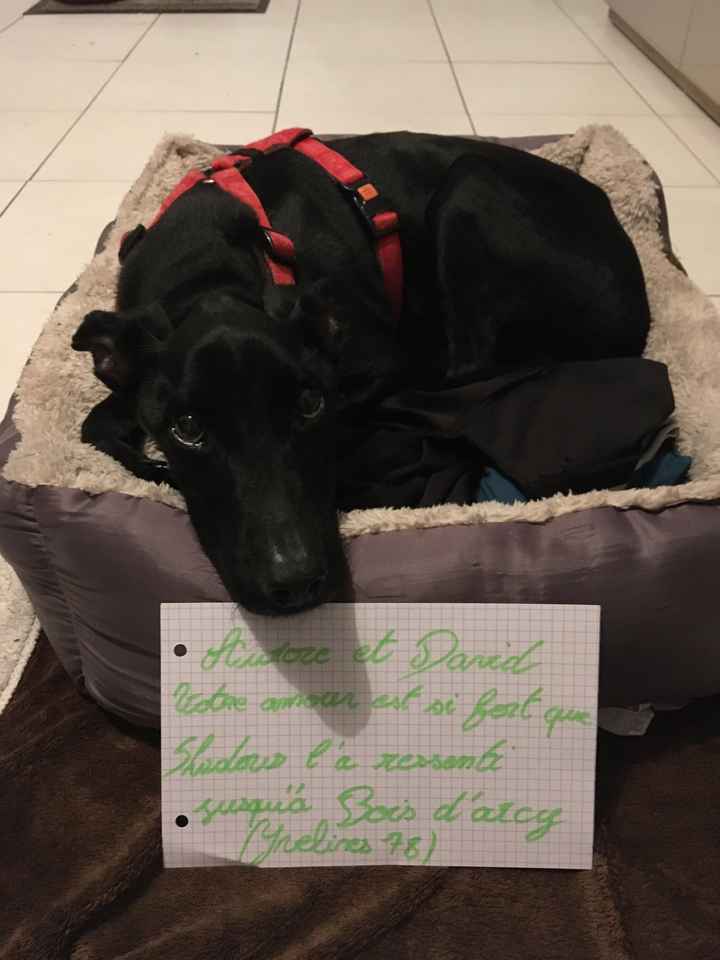 Aurore et David
Votre amour est si fort que
Shadow l'a ressenti
jusqu'à Bois d'arcy
(Yvelines 78)